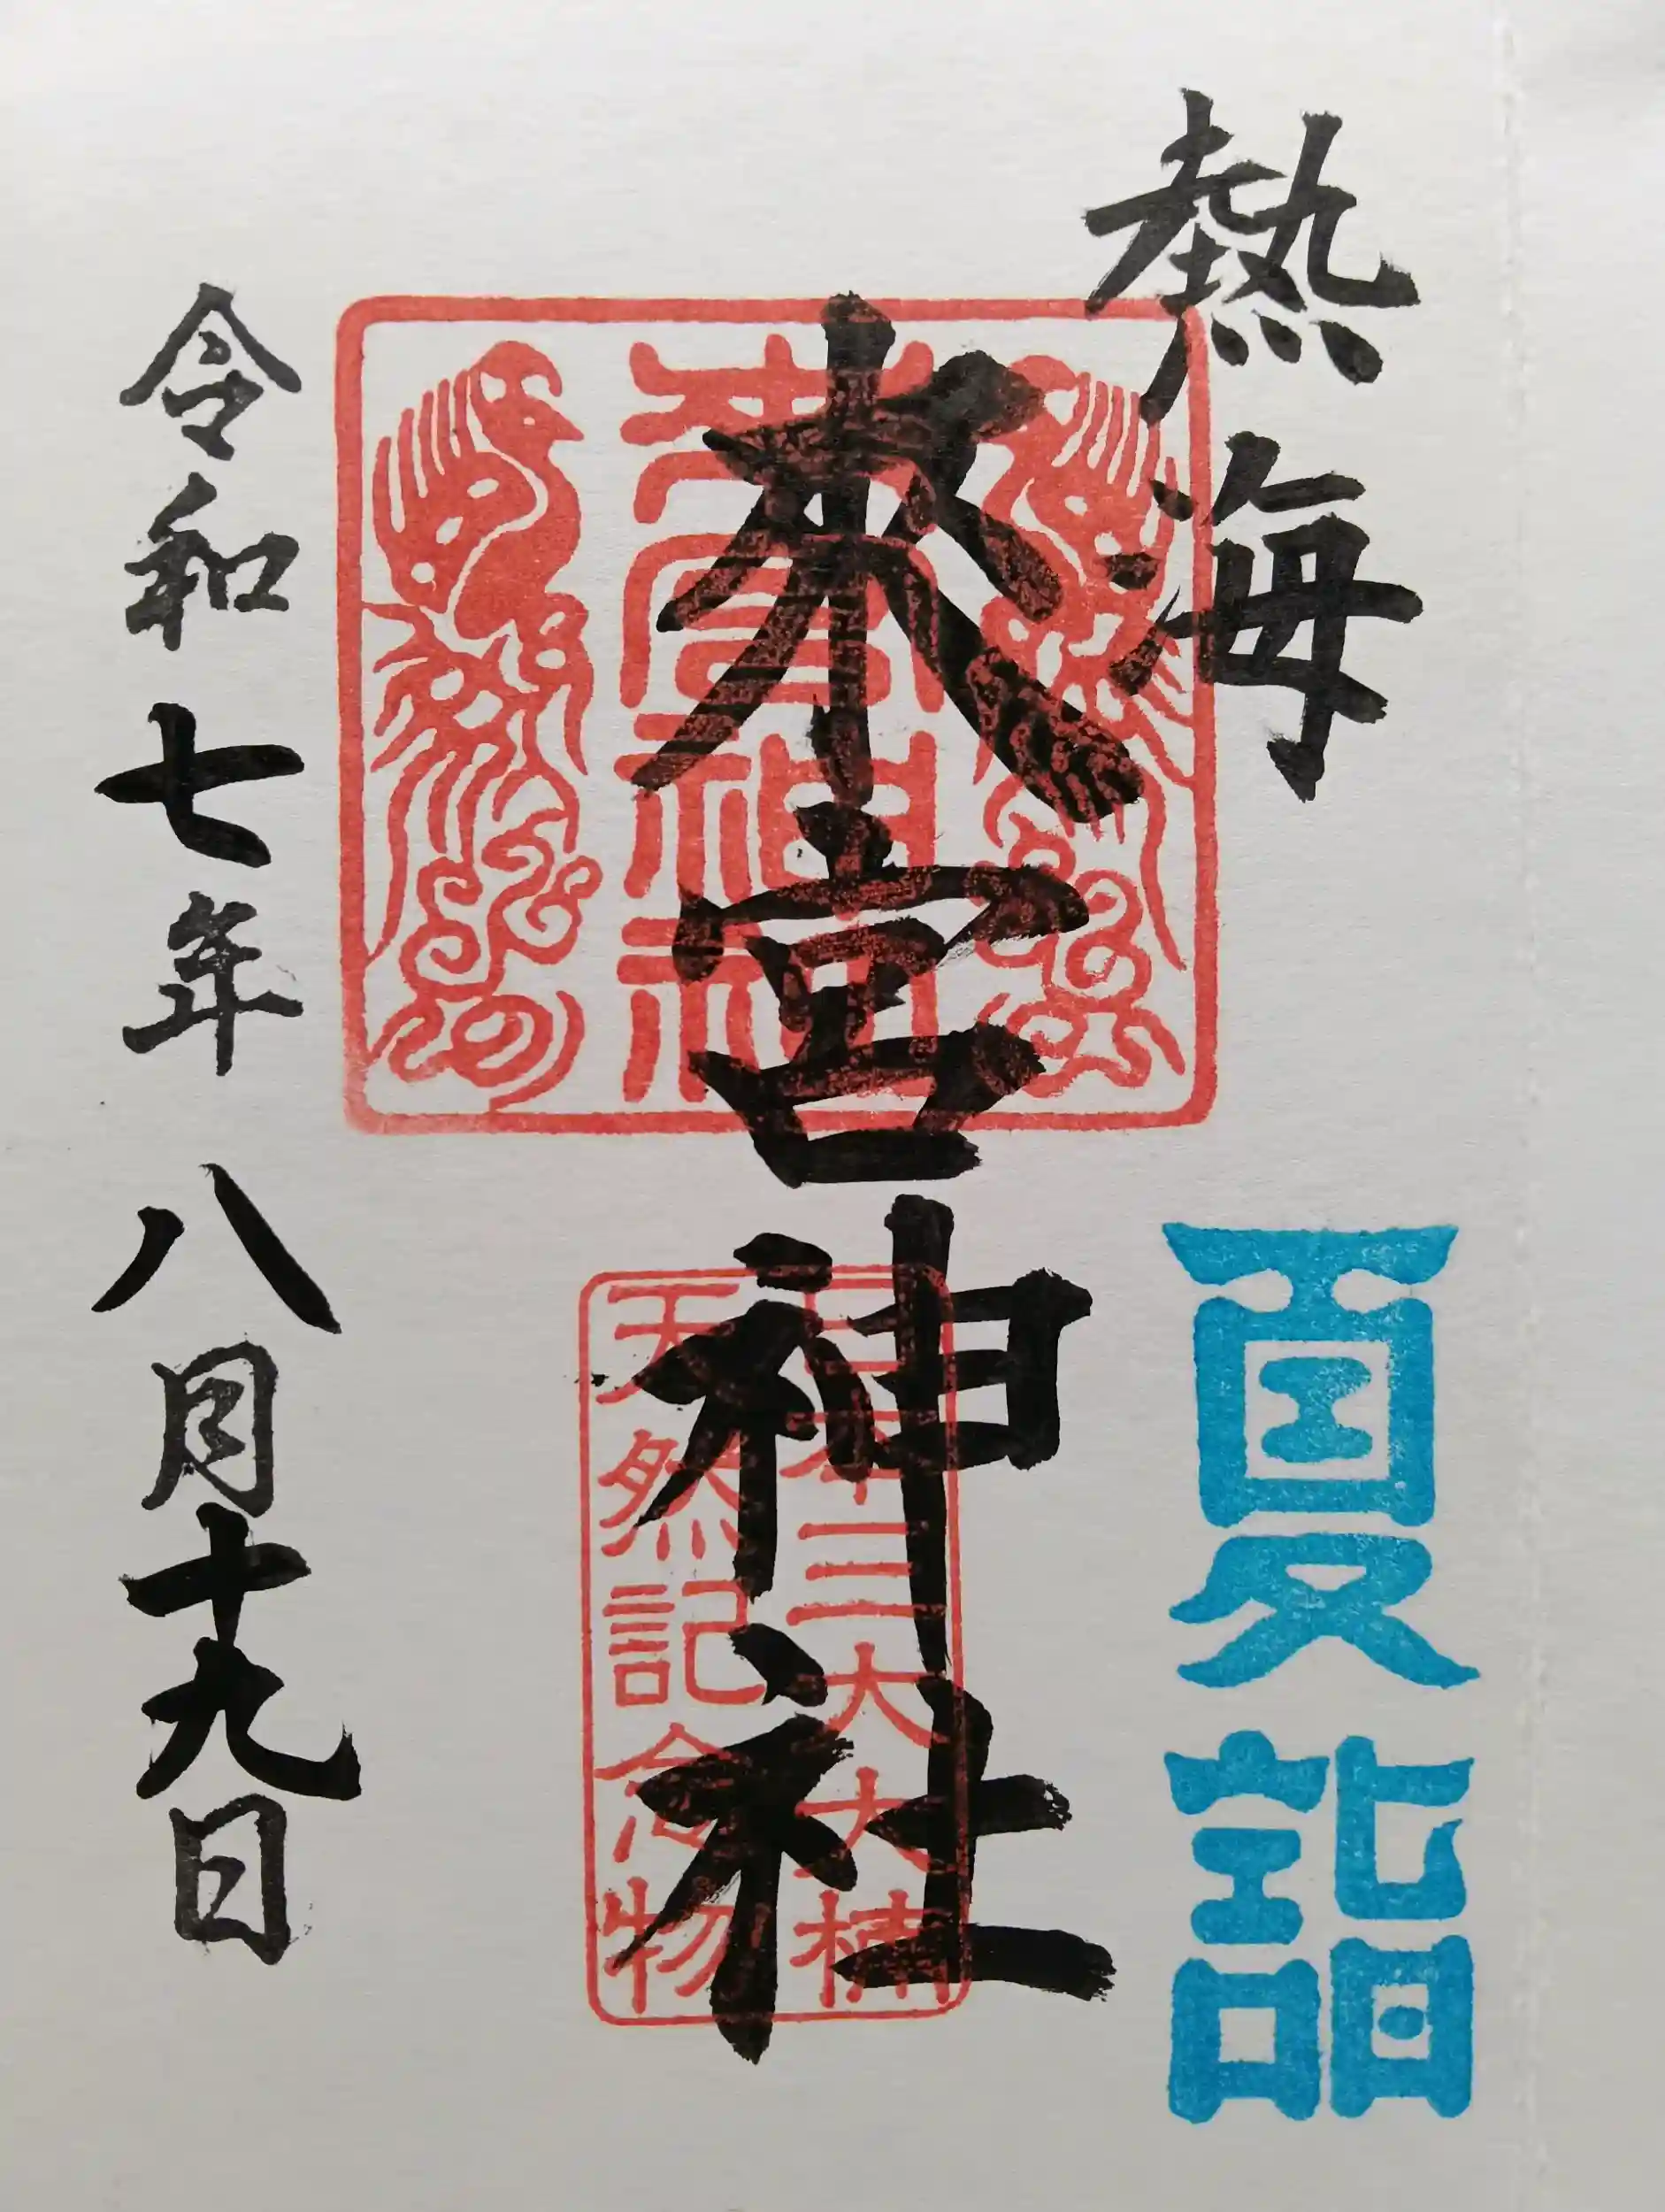 熱海
夏詣
來宮神社
來宮神社
日本三大大楠
天然記念物
令和七年八月十九日